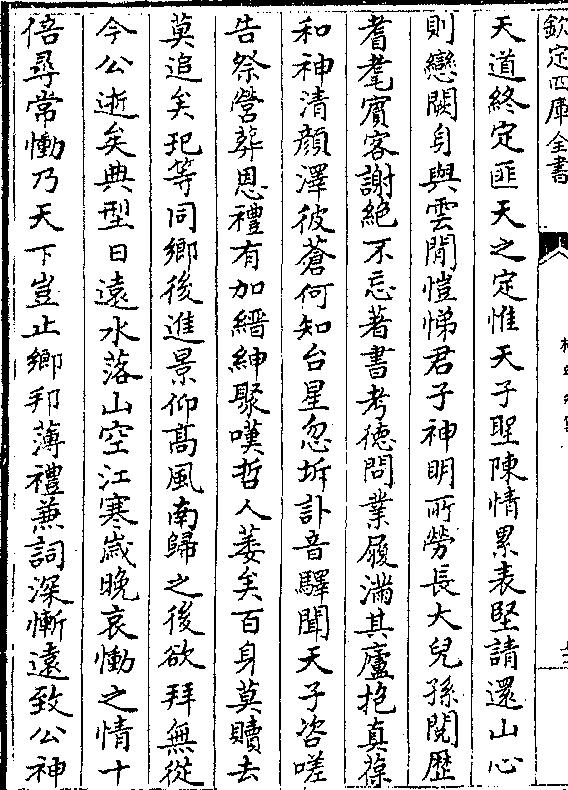 欽定四庫全書
天道終定匪天之定惟天子聖陳情累表堅請還山心
則戀闕身與雲閒愷悌君子神明所勞長大兒孫閱歴
耆耄賓客謝絶不忘著書考徳問業履滿其廬抱真葆
和神清顔澤彼蒼何知台星忽坼訃音驛聞天子咨嗟
告祭營葬恩禮有加縉紳聚嘆哲人萎矣百身莫贖去
莫追矣玘等同鄉後進景仰髙風南歸之後欲拜無從
今公逝矣典型日遠水落山空江寒嵗晩哀慟之情十
倍尋常慟乃天下豈止鄉邦薄禮蕪詞深慚遠致公神